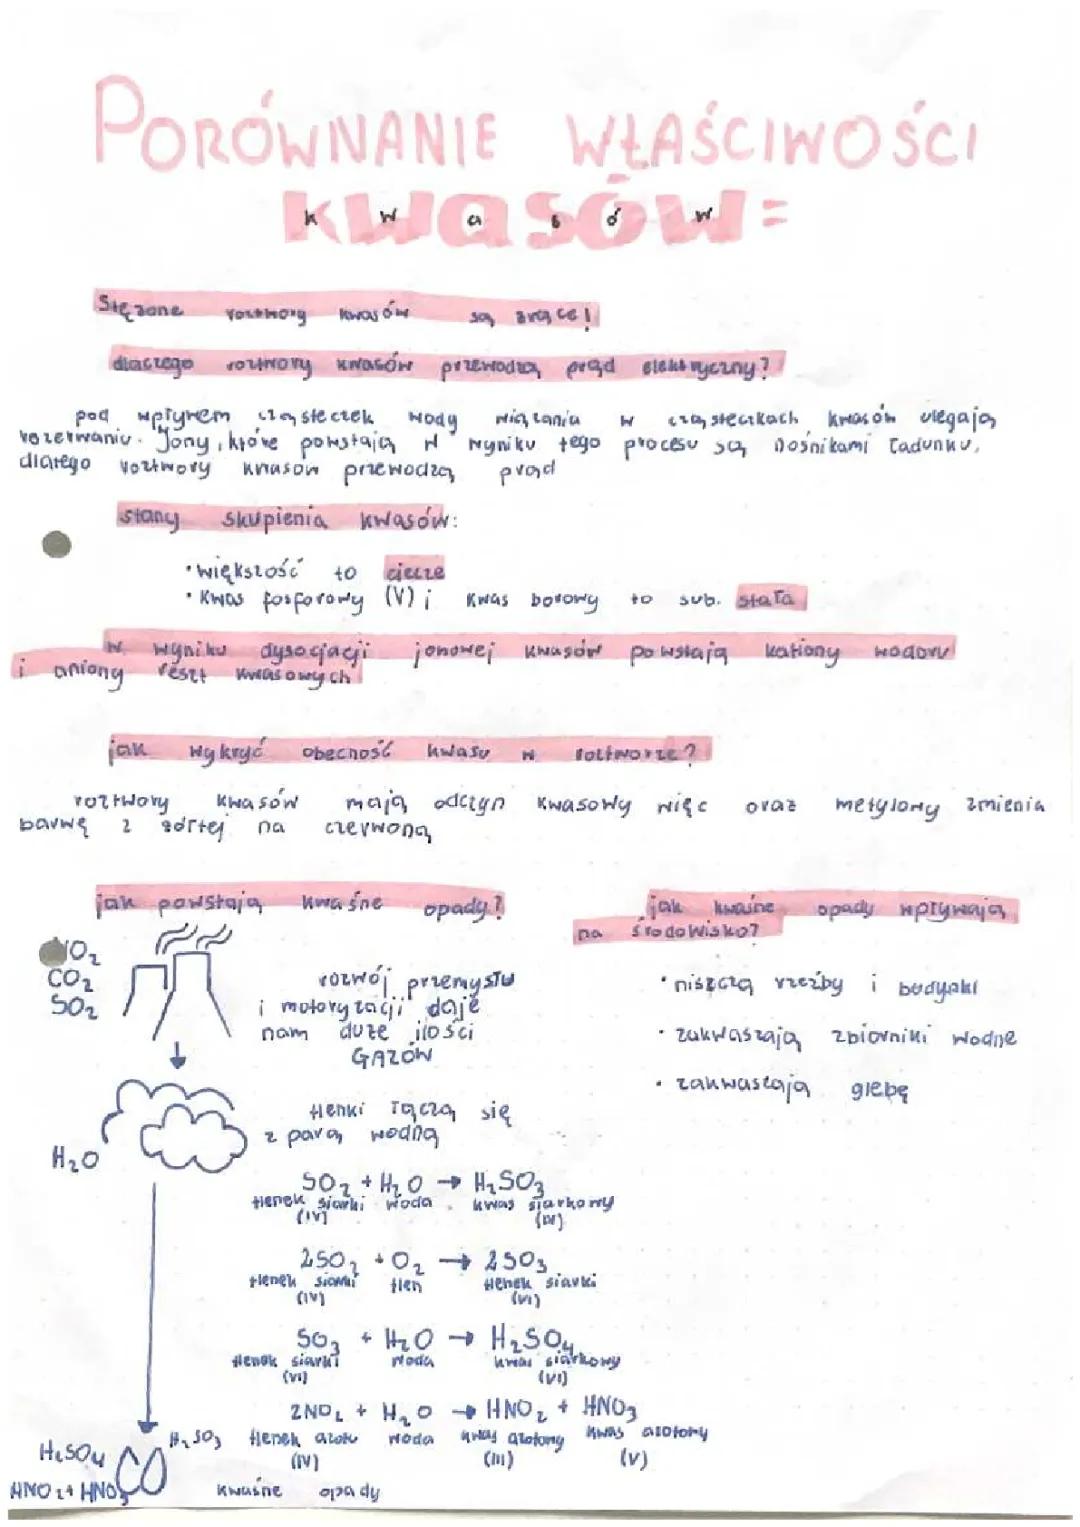 PORÓWNANIE WŁAŚCIWOŚCI
kwasów=
Stężone roztwory kwasów są żrące!
dlaczego roztwory kwasów przewodzą prąd elektryczny?
pod wpływem cząsteczek wody wiązania w cząsteczkach kwasów ulegają
rozerwaniu. Jony, które powstają w wyniku tego procesu są nośnikami ładunku,
dlatego roztwory kwasów przewodzą prąd
stany skupienia kwasów:
• większość to ciecze
• kwas fosforowy (V) i kwas borowy to sub. stała
w wyniku dysocjacji jonowej kwasów powstają kationy wodoru
i aniony reszt kwasowych
jak wykryć obecność kwasu w roztworze?
roztwory kwasów mają odczyn kwasowy więc oraz metylowy zmienia
barwę z żółtej na czerwoną
jak powstają kwaśne opady?
NO₂
CO₂
SO₂
rozwój przemysłu
i motoryzacji daje
nam duże ilości
GAZÓW
H₂O
tlenki łączą się
z parą wodną
SO₂ + H₂O → H₂SO₃
tlenek siarki woda kwas siarkowy
(IV) (IV)
2SO₂ + O₂ → 2SO₃
tlenek siarki tlen tlenek siarki
(IV) (VI)
SO₃ + H₂O → H₂SO₄
tlenek siarki woda kwas siarkowy
(VI) (VI)
2NO₂ + H₂O → HNO₂ + HNO₃
tlenek azotu woda kwas azotowy kwas azotowy
(IV) (III) (V)
H₂SO₄ H₂SO₃
HNO₂+ HNO₃
kwaśne opady
jak kwaśne opady wpływają
na środowisko?
• niszczą rzeźby i budynki
• zakwaszają zbiorniki wodne
• zakwaszają glebę